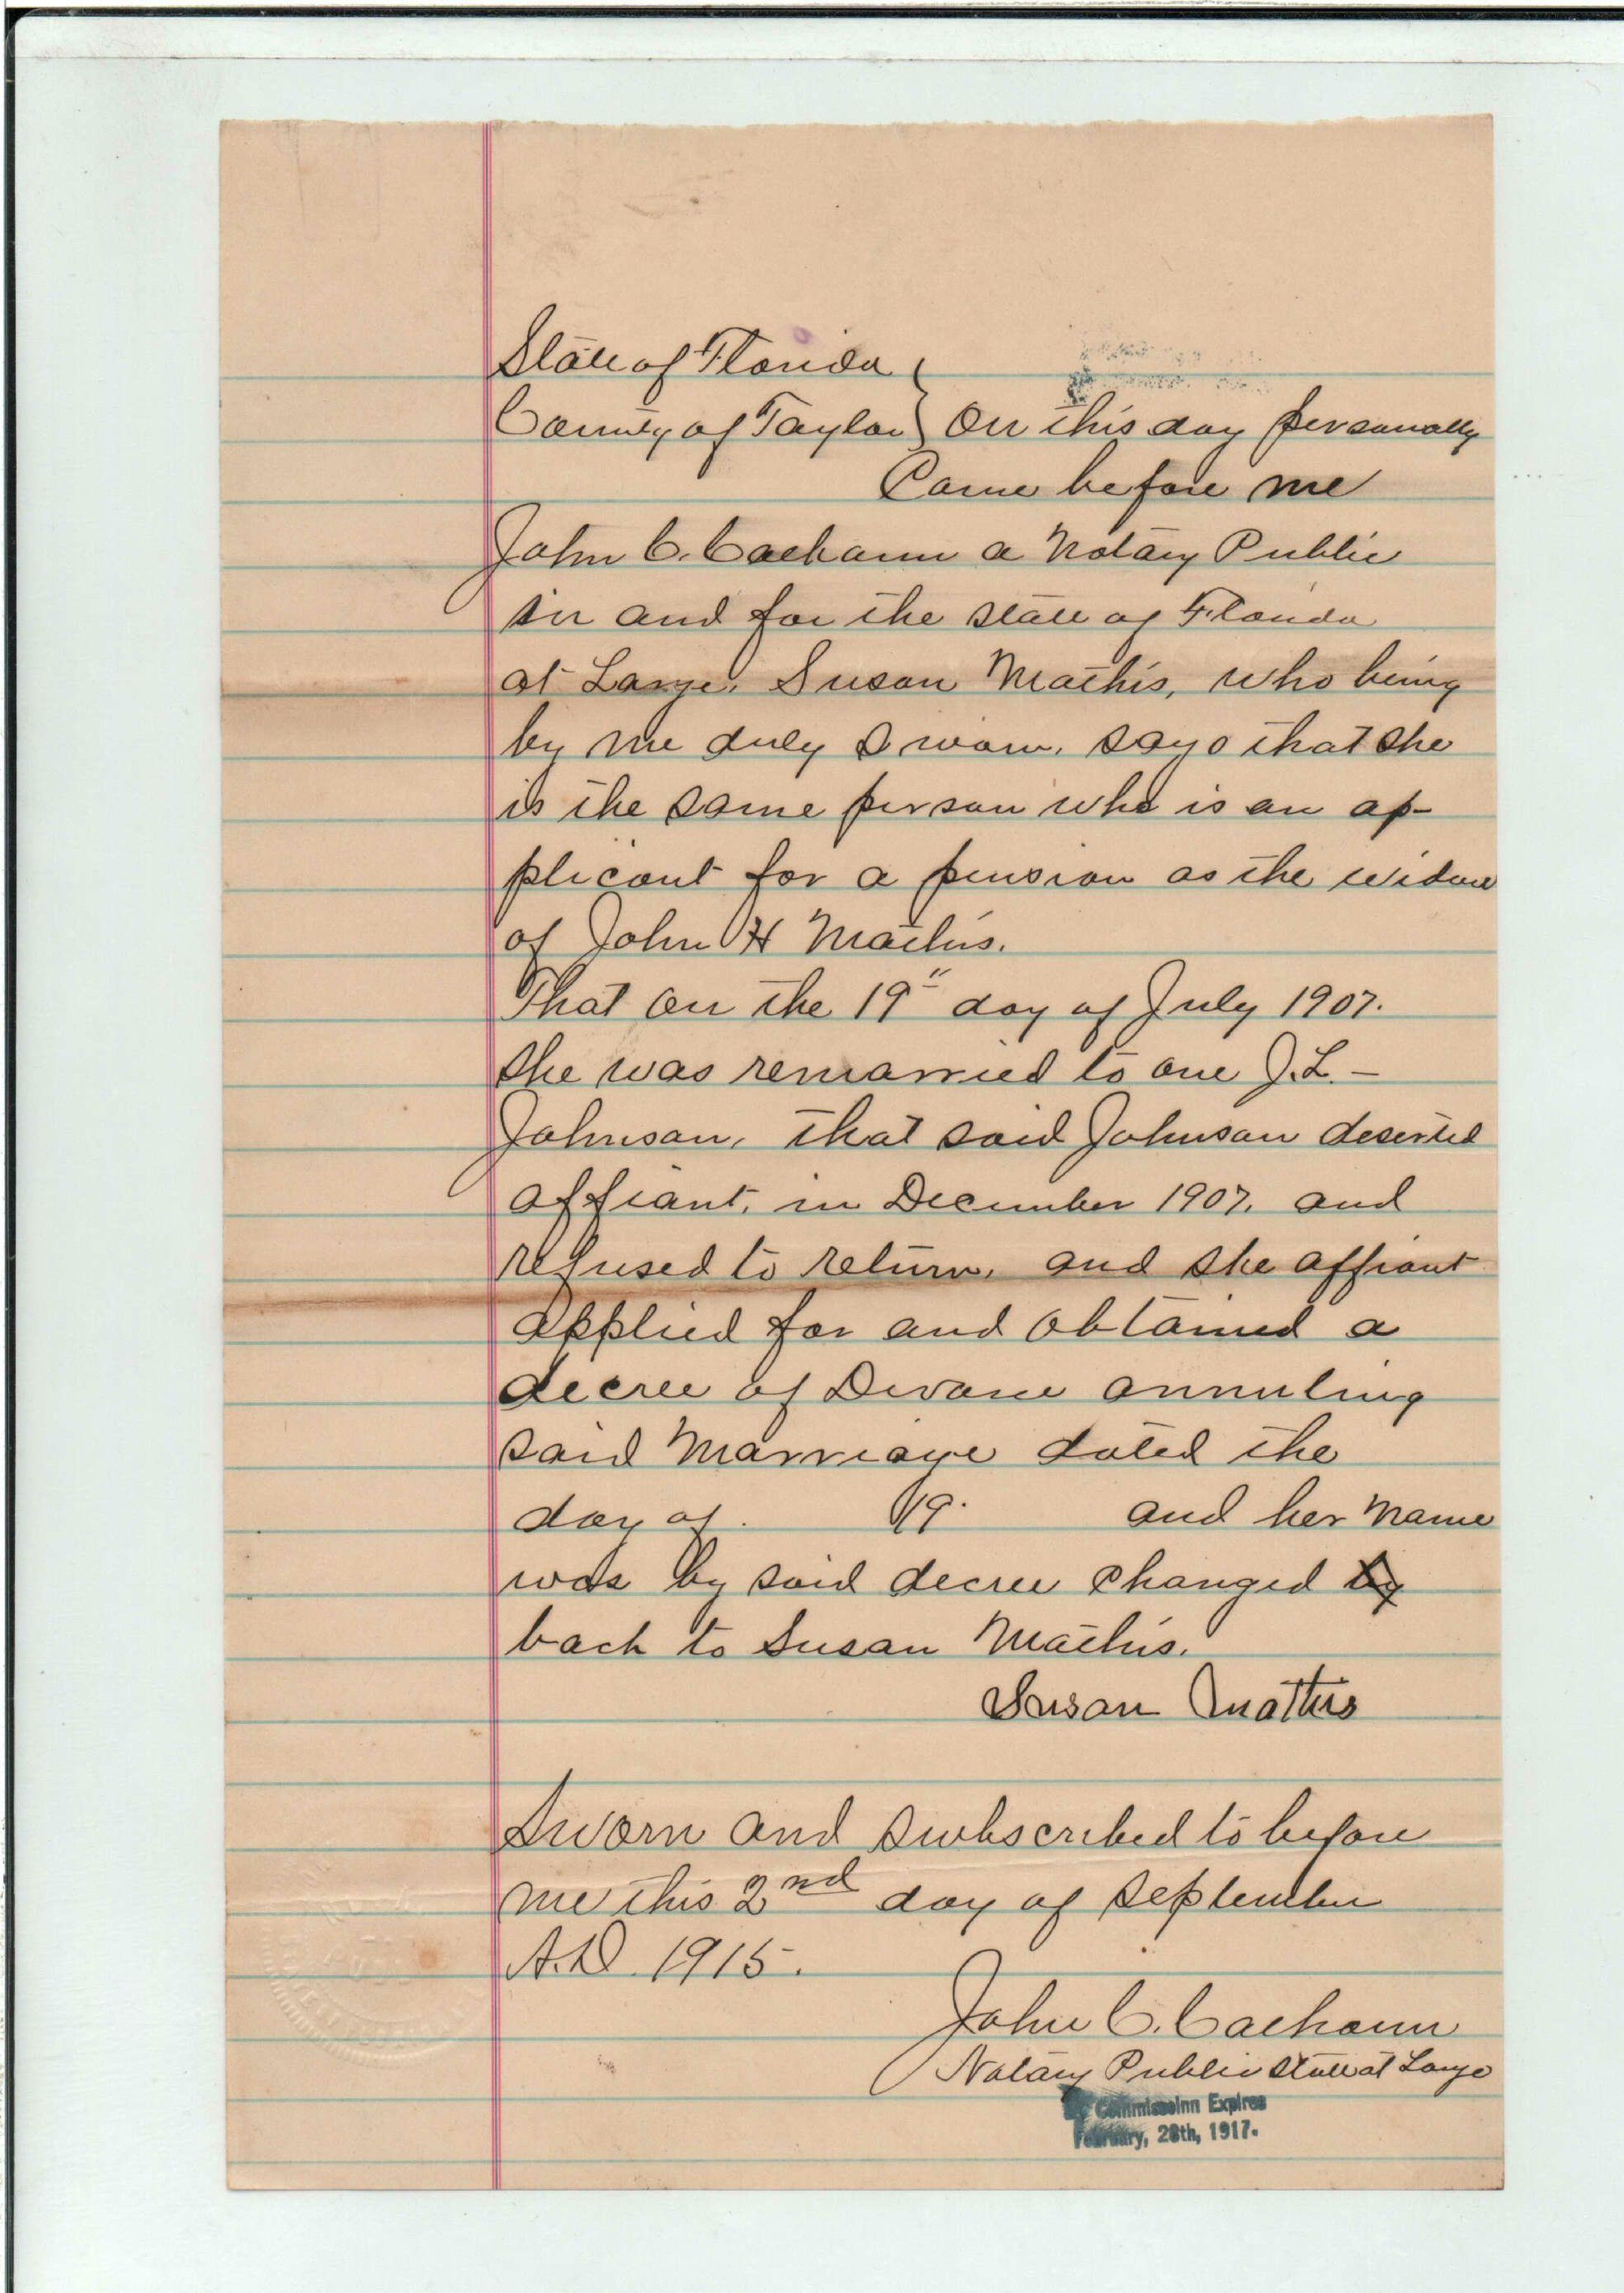 State of Florida
County of Taylor } On this day personally
Came before me
John C. Calhoun a Notary Public
in and for the state of Florida
at Large, Susan Mathis, who being
by me duly sworn, says that she
is the same person who is an ap-
plicant for a pension as the widow
of John H Mathis.
That on the 19" day of July 1907.
she was remarried to one J.L. -
Johnson, that said Johnson deserted
affiant, in December 1907, and
refused to return, and she affiant
applied for and obtained a
decree of Divorce annuling
said Marriage dated the
day of. 19. and her name
was by said decree changed by
back to Susan Mathis.
Susan Mathis
Sworn and subscribed to before
me this 2nd day of September
A.D. 1915.
John C. Calhoun
Notary Public State at Large
Commissoinn Expires
February, 28th, 1917.